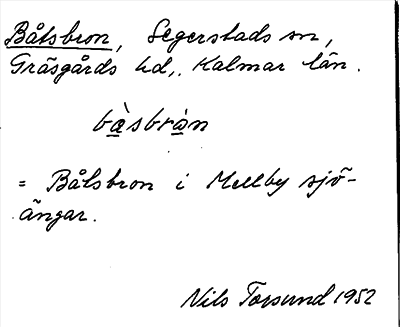 Båtsbron, Segerstads sn,
Gräsgårds hd,. Kalmar län.
bàsbràn
= Båtsbron i Mellby sjö-
ängar.
Nils Torsund 1952